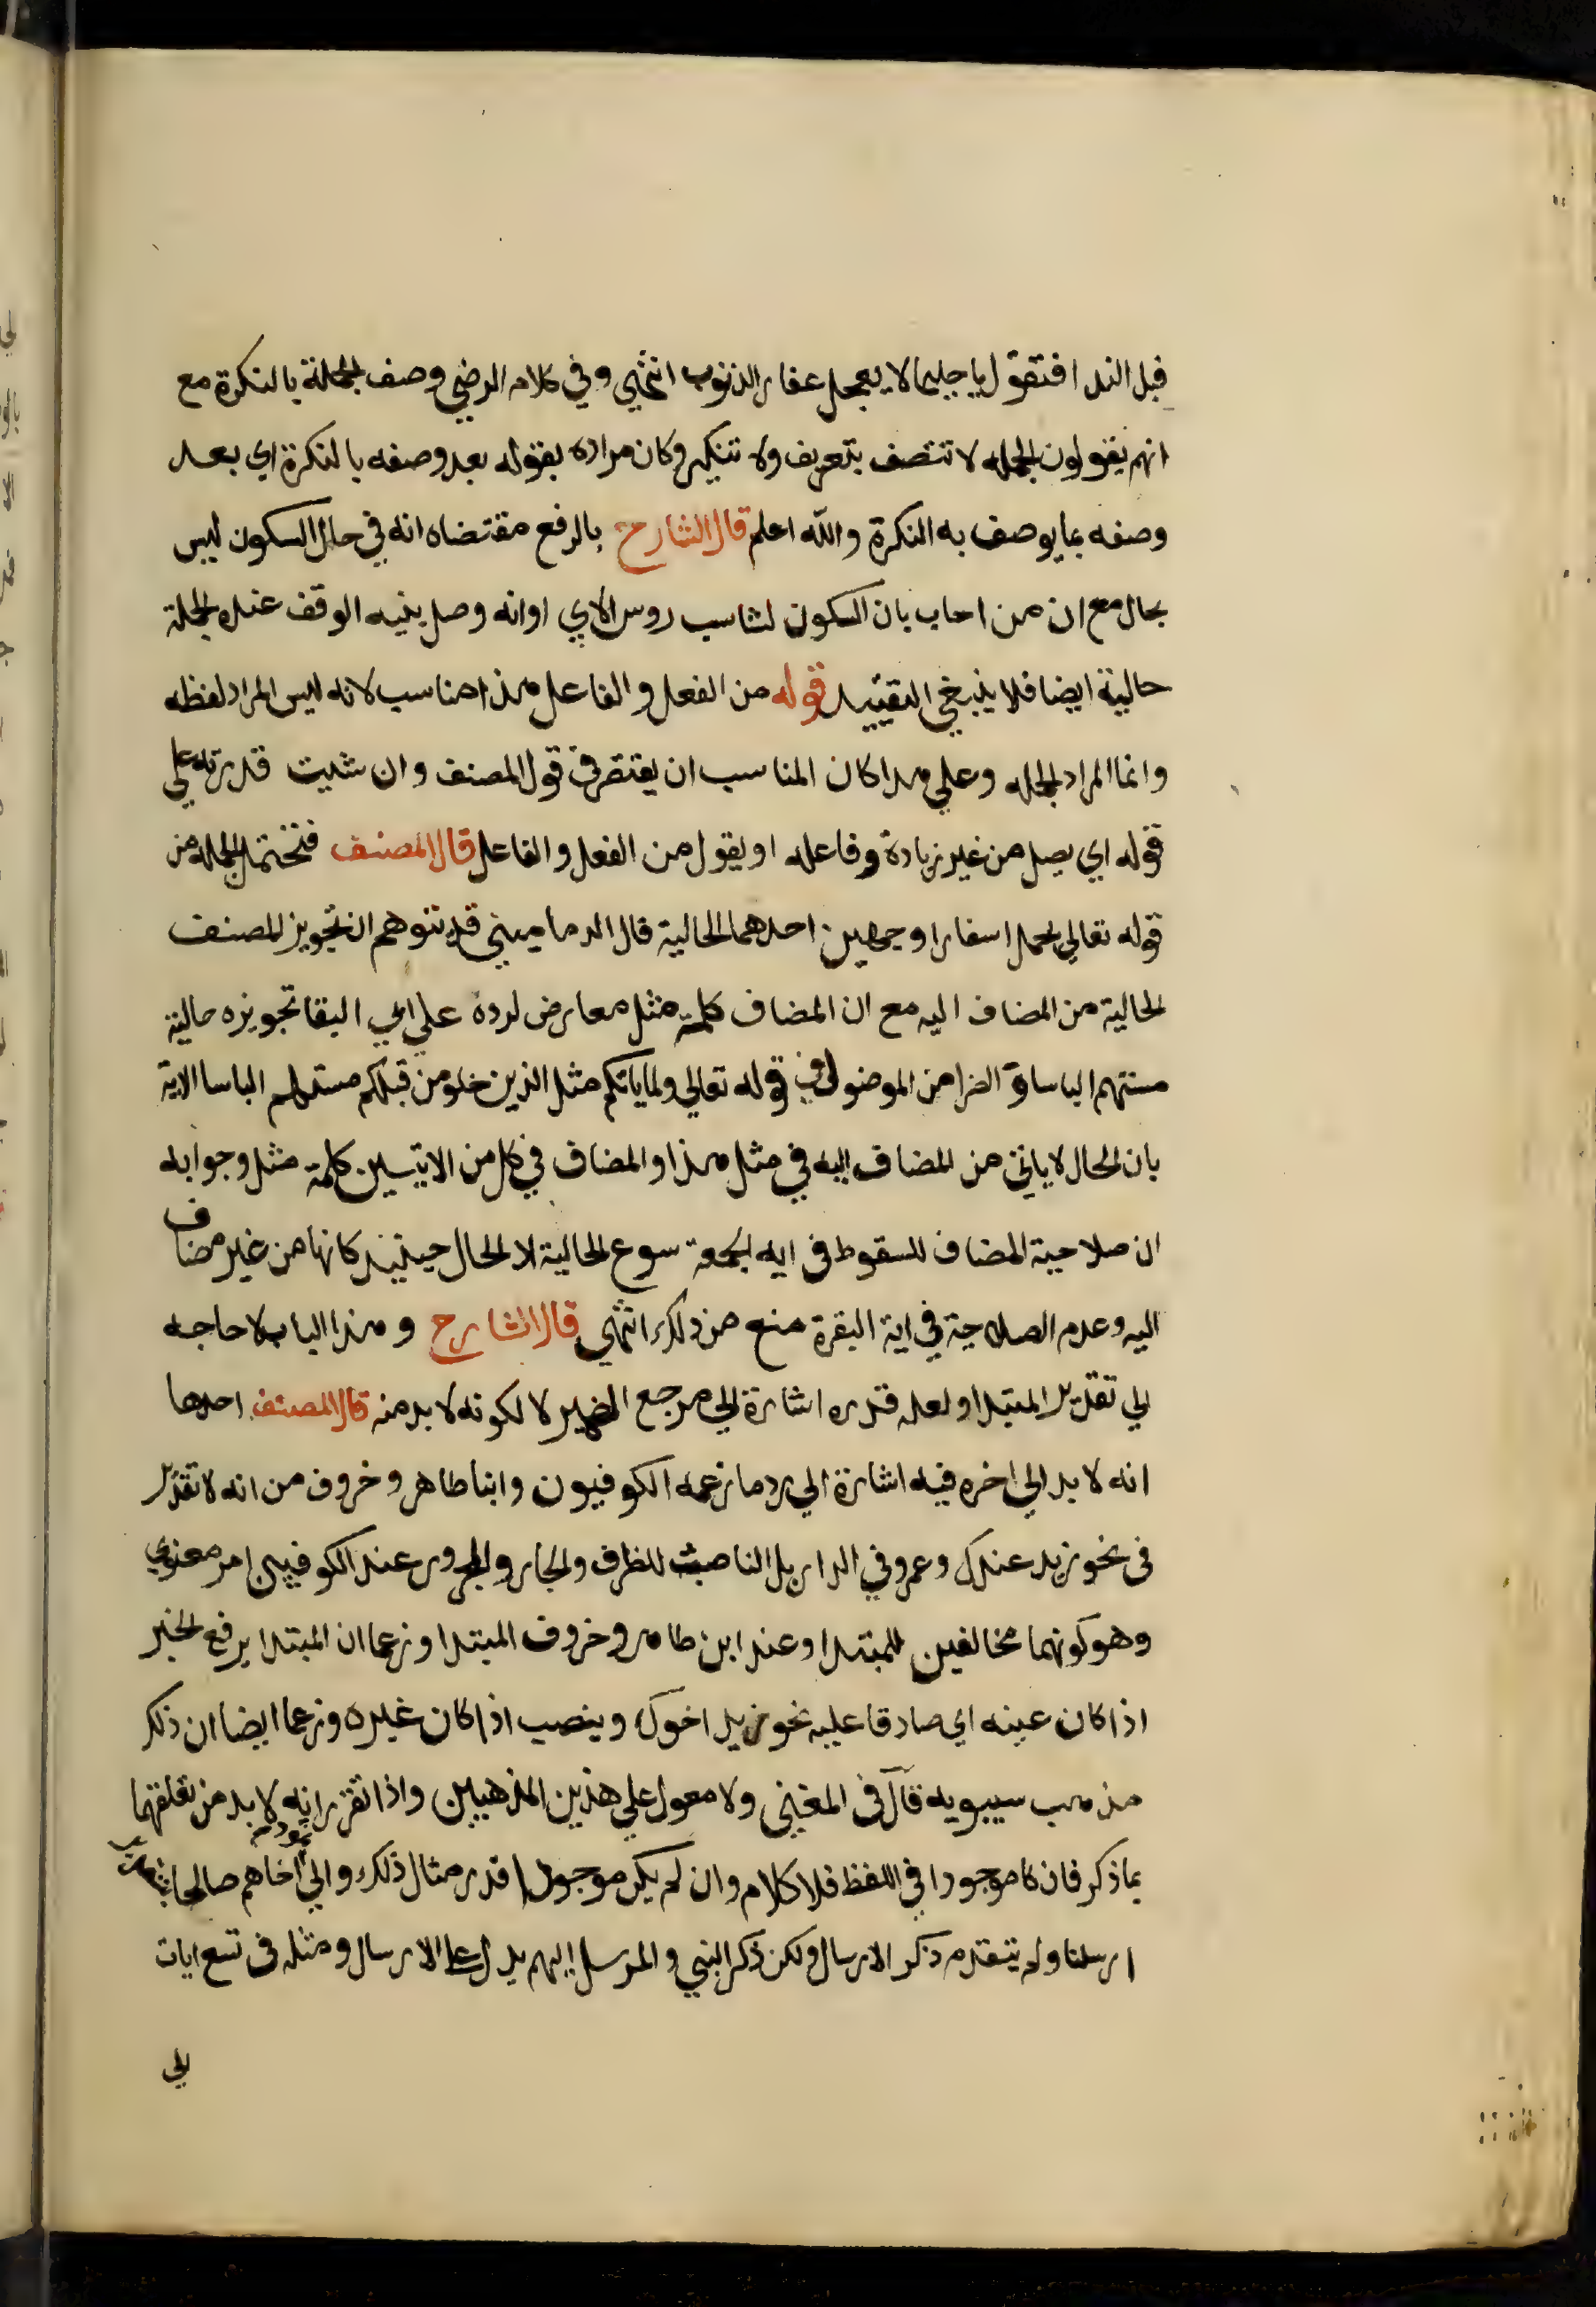 قبل الندا فتقول يا حليما لا يعجل غفار الذنوب انتهي وفي كلام الرضي وصف الجملة بالنكرة مع
انهم يقولون الجمله لا تتصف بتعريف ولا تنكير وكان مراده بقوله بعد وصفه بالنكرة اي بعد
وصفه بما يوصف به النكرة والله اعلم قال الشارح بالرفع مقتضاه انه في حال السكون ليس
بحال مع ان من اجاب بان السكون لتناسب روس الاي او انه وصل بنيه الوقف عنده الجملة
حالية ايضا فلا ينبغي التقييد قوله من الفعل والفاعل هذا مناسب لانه ليس المراد لفظه
وانما المراد الجمله وعلي هذا كان المناسب ان يقتصر في قول المصنف وان شيت قدرته علي
قوله اي يصل من غير زيادة وفاعله او يقول من الفعل والفاعل قال المصنف فتحتمل الجملة من
قوله تعالي يحمل اسفارا وجهين احدهما الحالية قال الدماميني قد تتوهم ان تجويز المصنف
الحالية من المضاف اليه مع ان المضاف كلمة مثل معارض لرده علي ابي البقا تجويزه حالية
مستهم الباسا والضرا من الموصول في قوله تعالي ولما ياتكم مثل الذين خلو من قبلكم مستهم الباسا الاية
بان الحال لا ياتي من المضاف اليه في مثل هذا والمضاف في كل من الايتين كلمة مثل وجوابه
ان صلاحية المضاف للسقوط في ايه الجمعة سوغ الحالية لا الحال حينيذ كانها من غير مضاف
اليه وعدم الصلاحية في اية البقرة منع من ذلك انتهي قال الشارح وهذا الباب لا حاجه
الي تقدير المبتدا ولعله قدره اشارة الي مرجع الضمير لا لكونه لا بد منه قال المصنف احدها
انه لا بد الي اخره فيه اشارة الي رد ما زعمه الكوفيون وابنا طاهر وخروف من انه لا تقدير
في نحو زيد عندك وعمرو في الدار بل الناصب للظرف والجار والمجرور عند الكوفيين امر معنوي
وهو كونهما مخالفين للمبتدا وعند ابن طاهر وخروف المبتدا وزعما ان المبتدا يرفع الخبر
اذا كان عينه اي صادقا عليه نحو زيد اخوك وينصب اذا كان غيره وزعما ايضا ان ذلك
مذهب سيبويه قال في المغني ولا معول علي هذين المذهبين واذا تقرر انه لا بد من تعلقهما
بما ذكر فان كا موجودا في اللفظ فلا كلام وان لم يكن موجودا قدر مثال ذلك والي ثمود اخاهم صالحا بتقدير
ارسلنا ولم يتقدم ذكر الارسال ولكن ذكر النبي والمرسل اليهم يدل علي الارسال ومثله في تسع ايات
الي